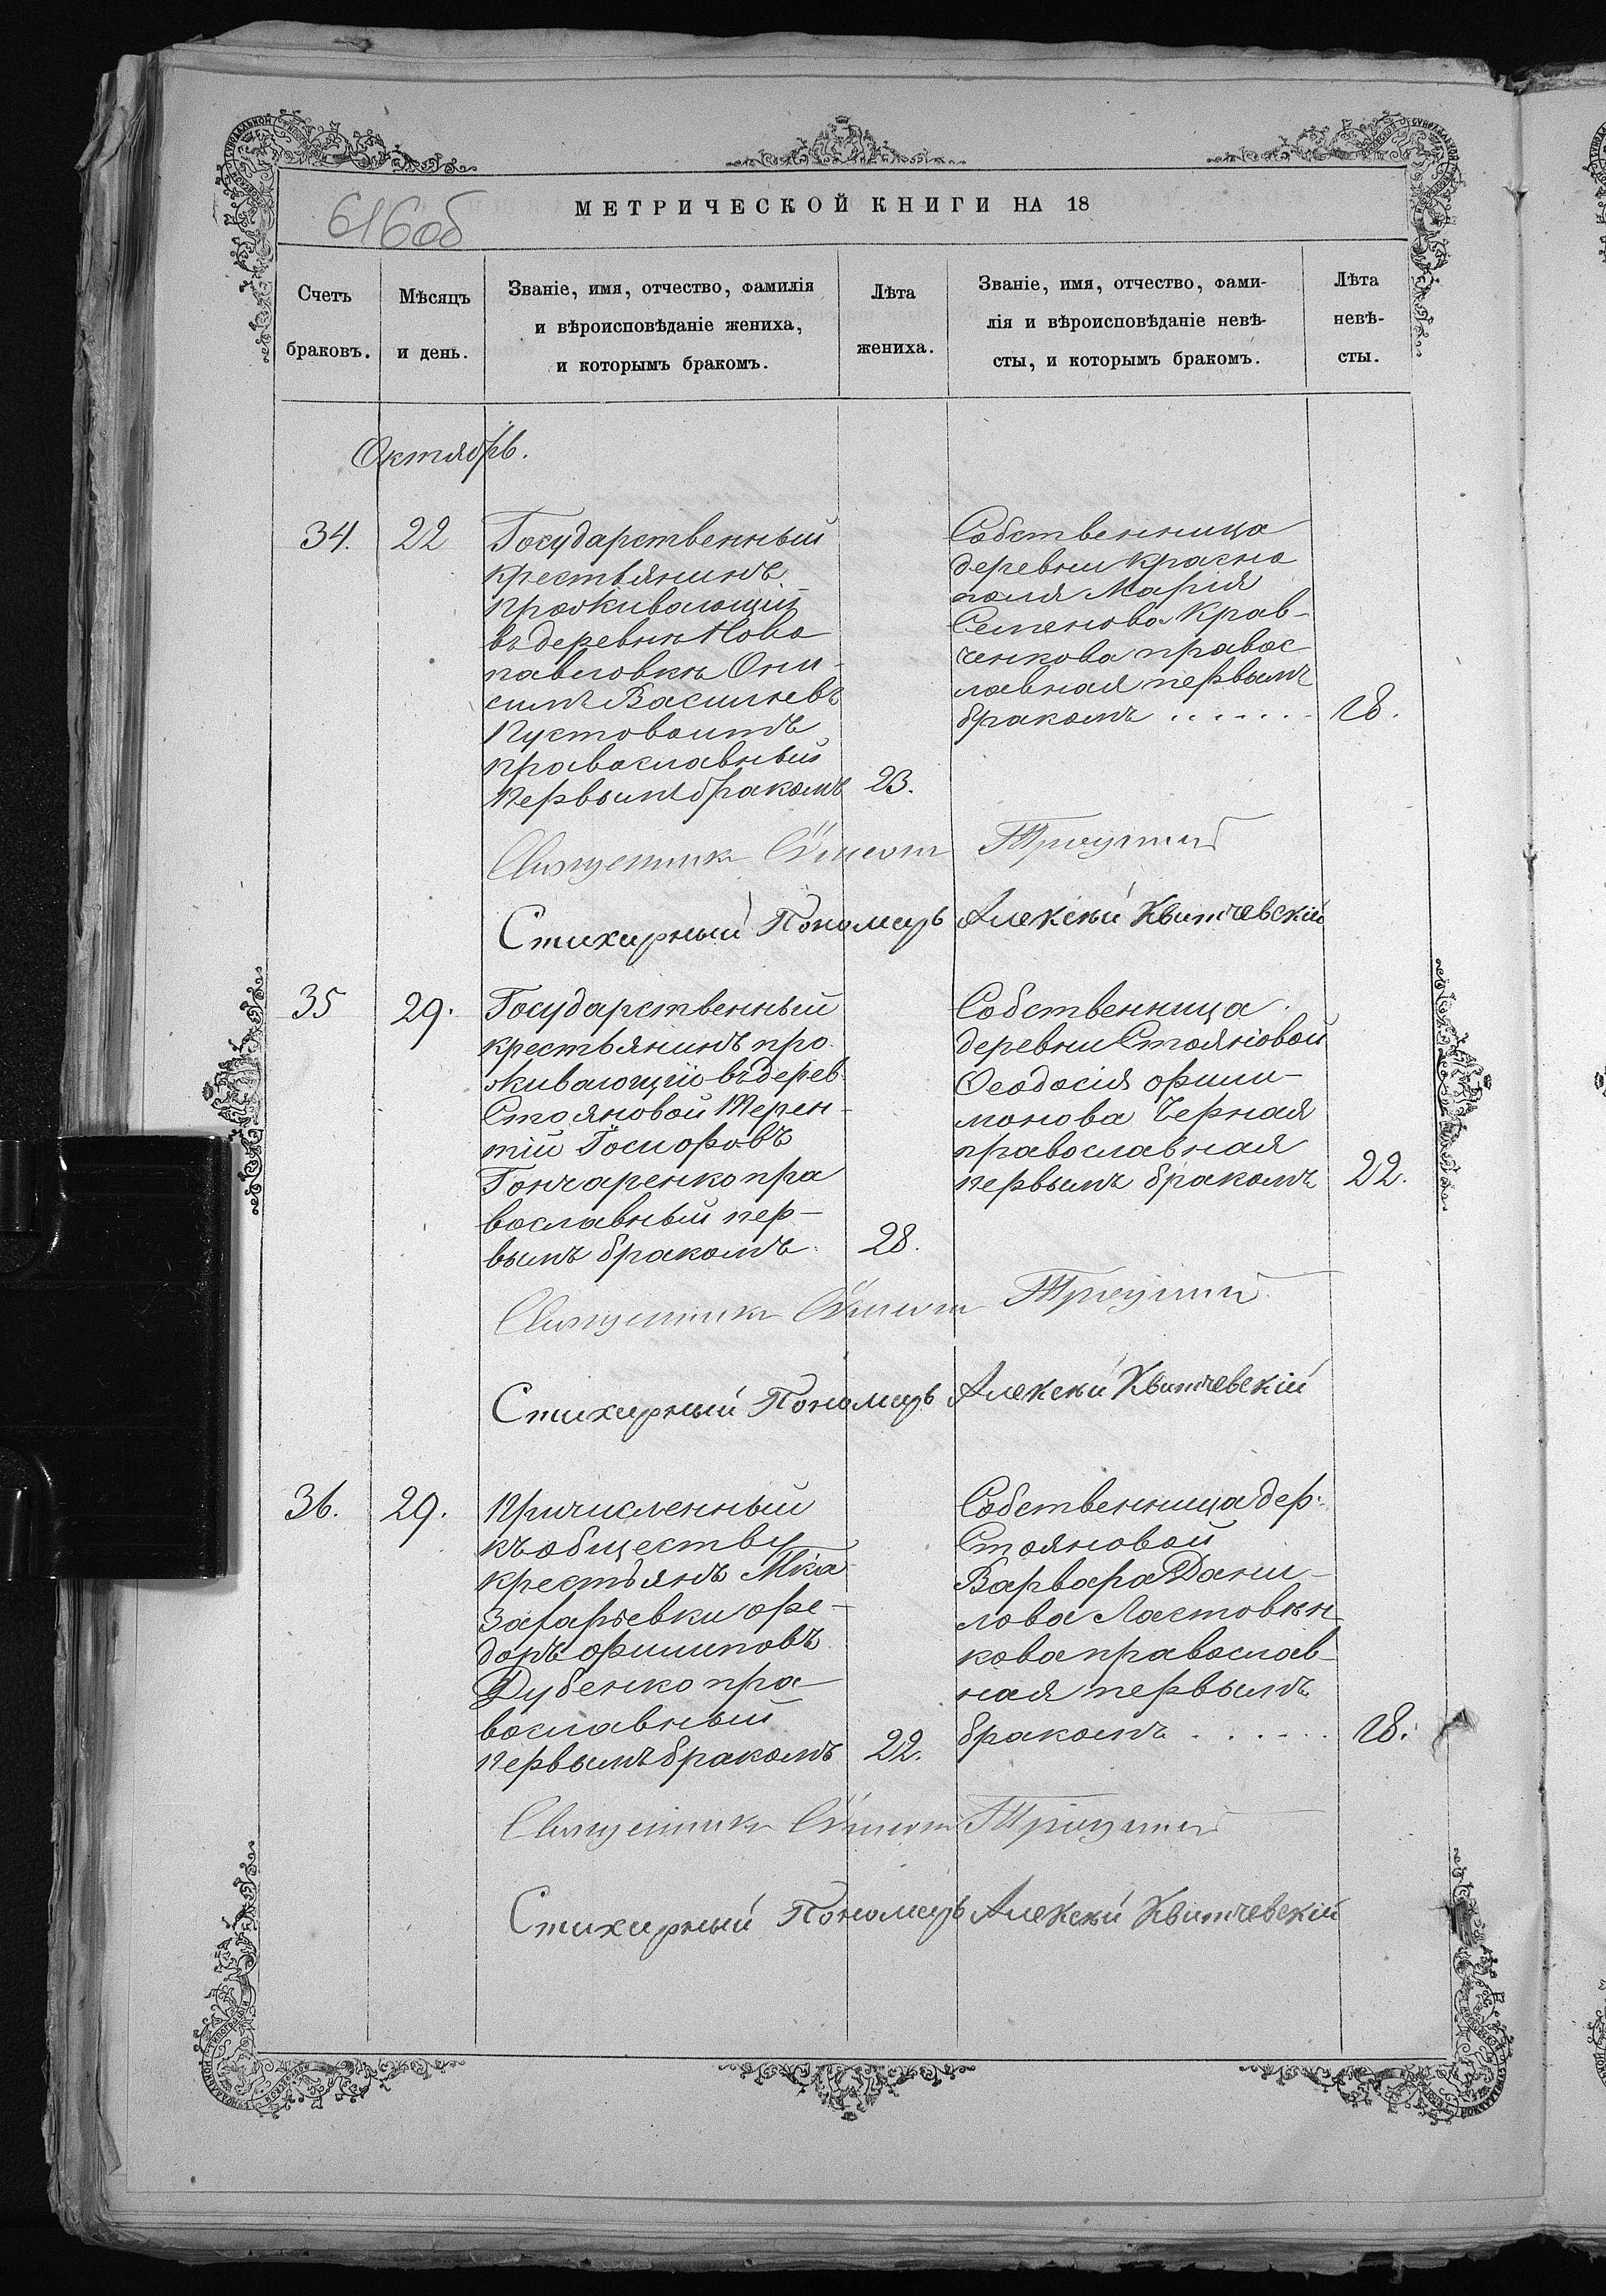 МЕТРИЧЕСКОЙ КНИГИ НА 18
616об
Счетъ браковъ.
Мѣсяцъ и день.
Званіе, имя, отчество, фамилія
и вѣроисповѣданіе жениха,
и которымъ бракомъ.
Лѣта жениха.
Званіе, имя, отчество, фами-
лія и вѣроисповѣданіе невѣ-
сты, и которымъ бракомъ.
Лѣта невѣ-
сты.
Октябрь.
34. 22
Государственный
крестьянинъ
проживающій
въ деревнѣ Ново
павловкѣ Они-
симъ Васильевъ
Пустовоитъ
православный
первымъ бракомъ 23.
Собственница
деревни Красно
поля Марія
Семенова Крав-
ченкова правос
лавная первымъ
бракомъ . . . . . . 18.
Священникъ
Стихирный Пономарь Алексѣй Квитчевскій
35 29.
Государственный
крестьянинъ про
живающій въ дерев
Стояновой Терен-
тій
Гончаренко пра
вославный пер-
вымъ бракомъ. 28.
Собственница
деревни Стояновой
Ѳеодосія Фили-
монова Черная
православная
первымъ бракомъ 22.
Священникъ
Стихирный Пономарь Алексѣй Квитчевскій
36. 29.
Причисленный
къ обществу
крестьянъ М-ка
Захарьевки Фе-
доръ Филиповъ
Дубенко пра-
вославный
первымъ бракомъ 22.
Собственница дер.
Стояновой
Варвара Дани-
лова Ластовѣн-
кова православ-
ная первымъ
бракомъ . . . . . 18.
Священникъ
Стихирный Пономарь Алексѣй Квитчевскій